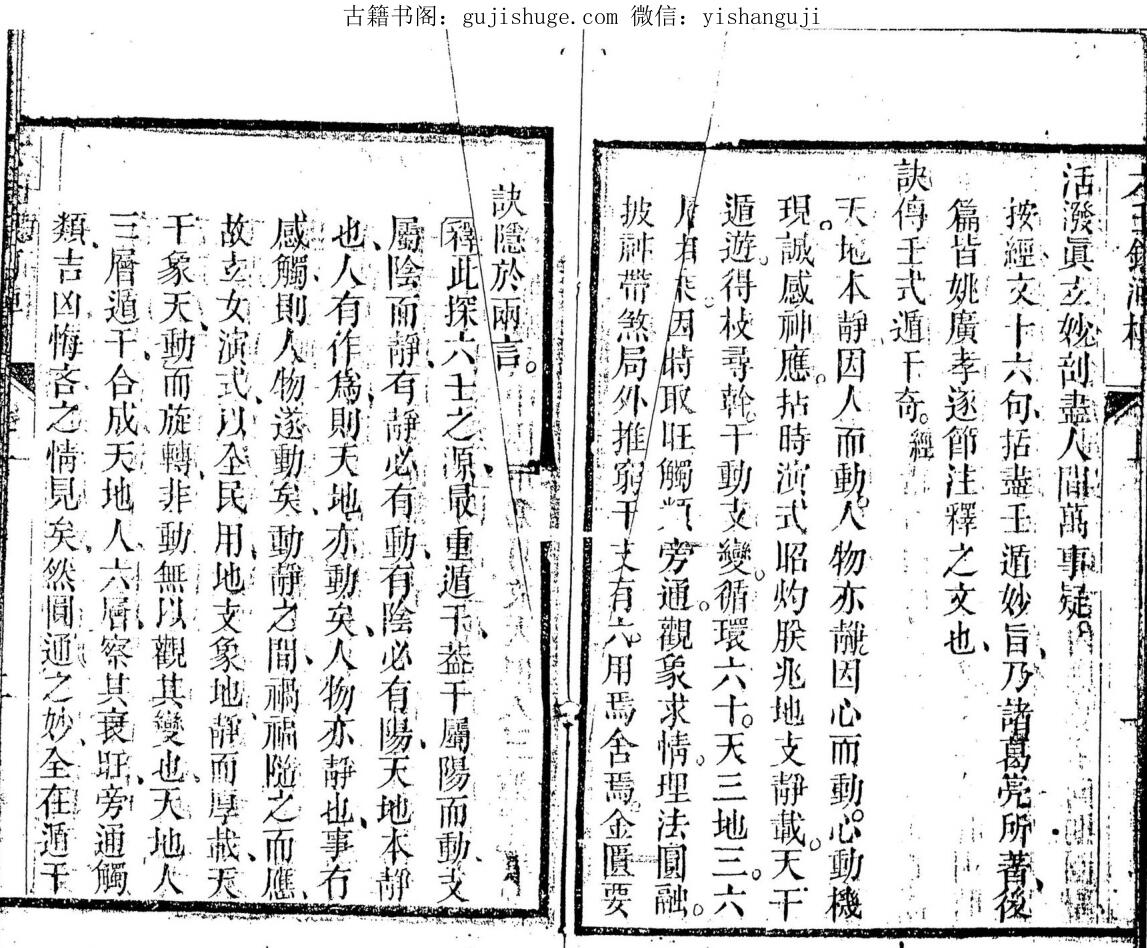 古籍书阁：gujishuge.com 微信：yishanguji
活潑眞玄妙剖盡人間萬事疑。
按經文十六句、括盡壬遁妙旨、乃諸葛亮所著、後
篇皆姚廣孝逐節注釋之文也、
訣傳壬式遁干奇。經
天地本靜因人而動。人物亦靜因心而動。心動機
現。誠感神應。拈時演式昭灼朕兆地支靜載。天干
遁遊。得枝尋幹。干動支變。循環六十。天三地三。六
因時取旺觸類旁通。觀象求情。理法圓融。
披神帶煞局外推窮干支有六。用焉舍焉。金匱要
訣隱於兩言。
釋此探六壬之源、最重遁干、蓋干屬陽而動、支
屬陰而靜、有靜必有動、有陰必有陽、天地本靜
也、人有作爲、則天地亦動矣、人物亦靜也、事有
感觸、則人物遂動矣、動靜之間、禍福隨之而應、
故立女演式、以全民用、地支象地靜而厚載、天
干象天、動而旋轉、非動無以觀其變也、天地人
三層遁干、合成天地人六層、察其衰旺、旁通觸
類、吉凶悔吝之情見矣、然圓通之妙、全在遁干